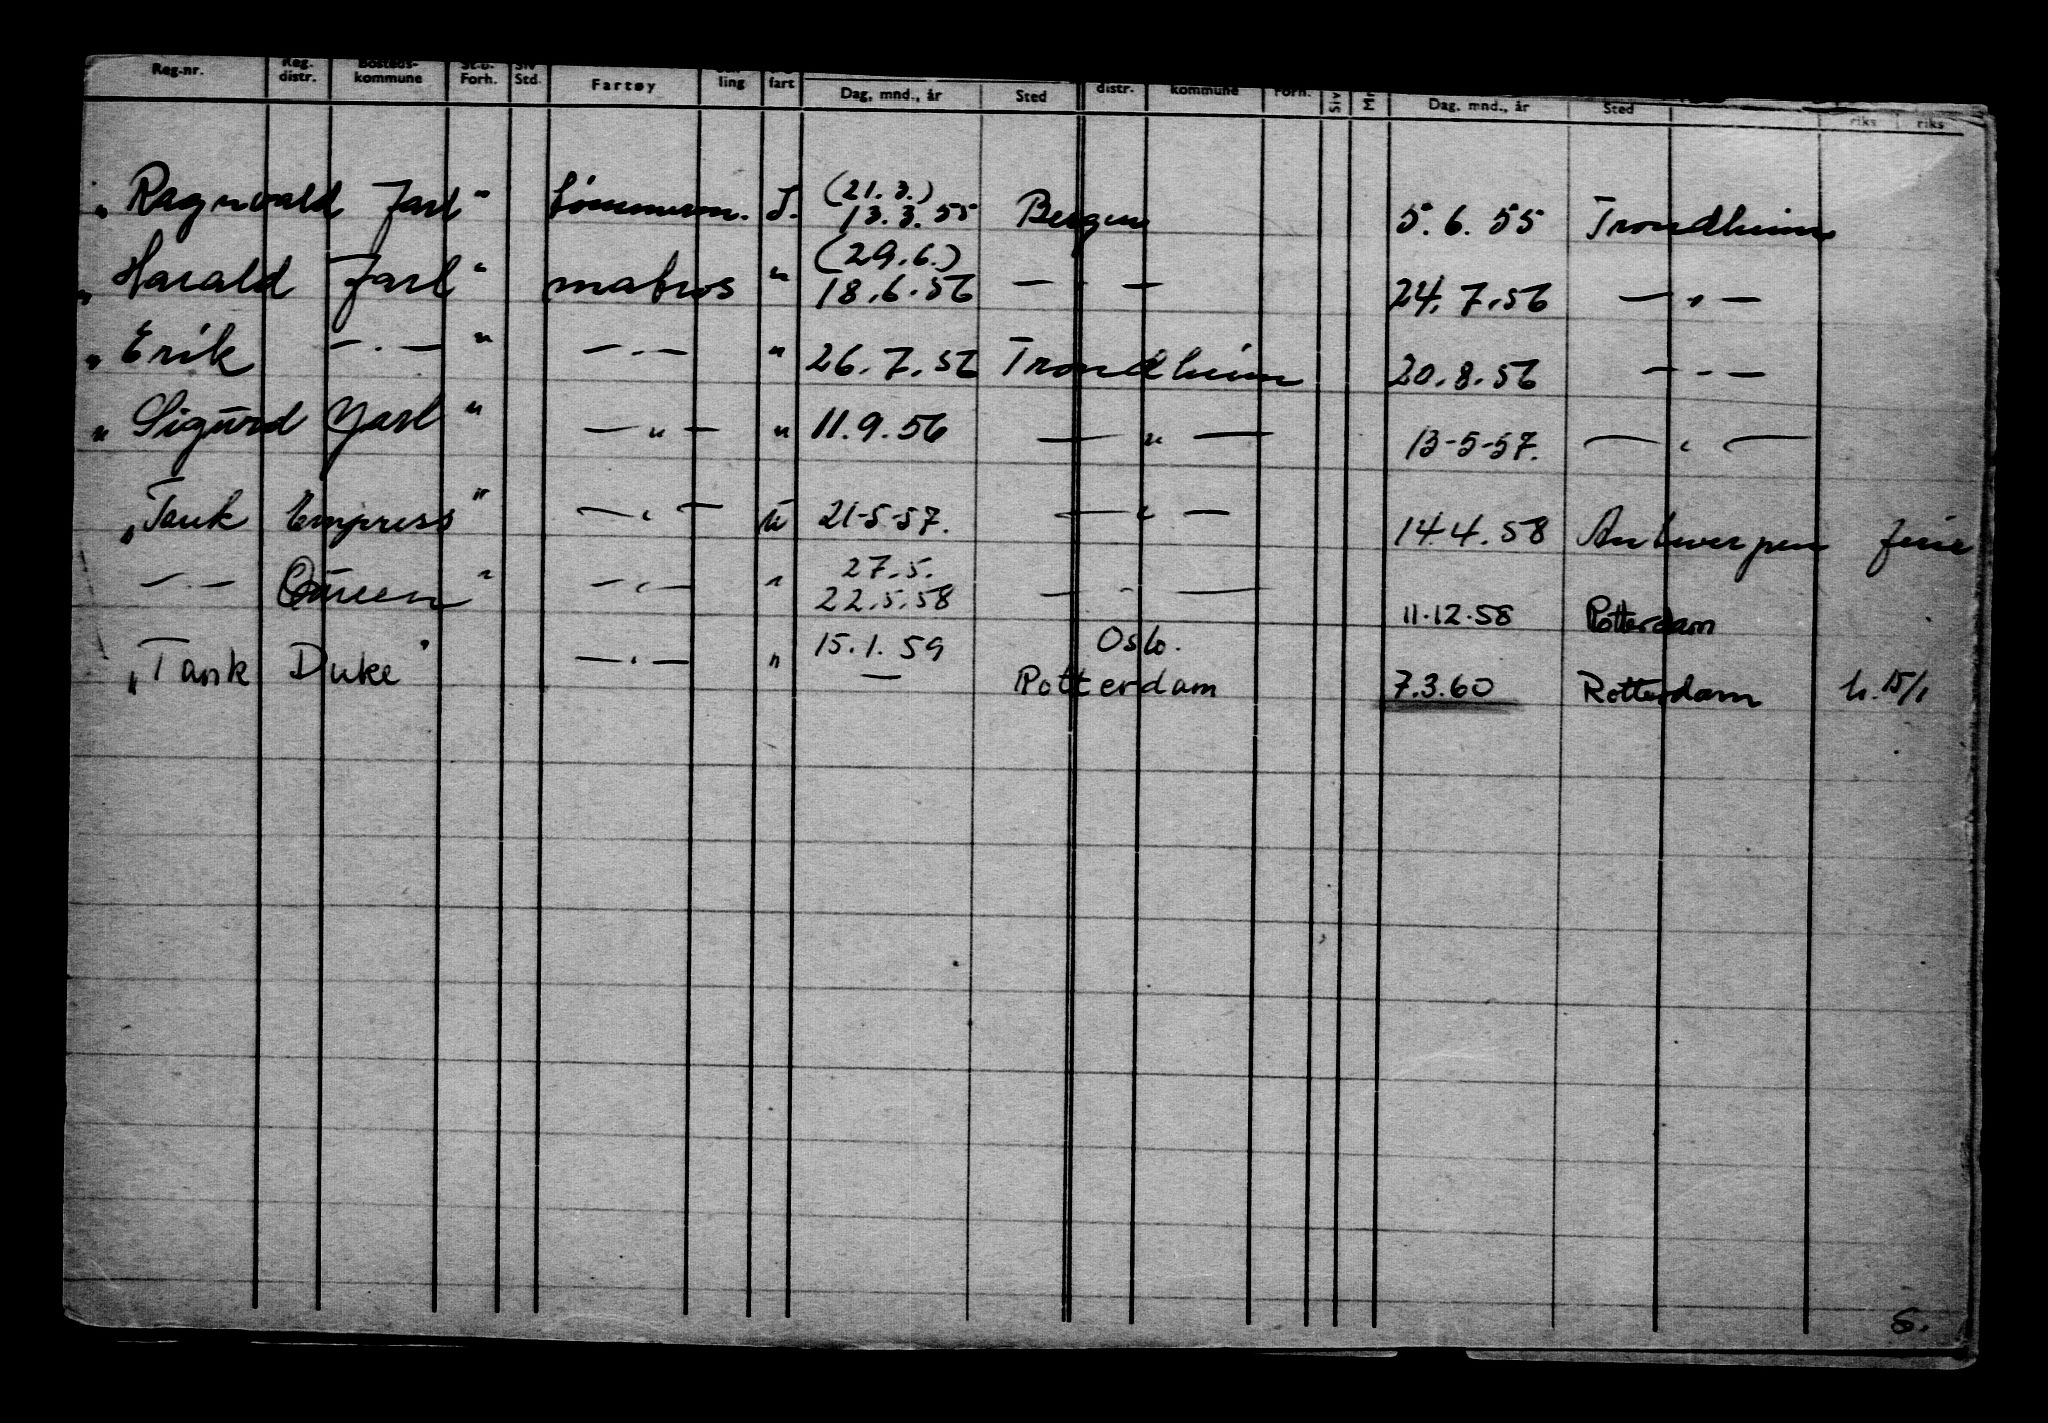 Reg-nr. Reg. distr. Bosteds-kommune St.b. Forh. Siv Std. Fartøy ling fart Dag, mnd., år Sted distr. kommune Forh. Siv Dag, mnd., år Sted riks riks
„Ragnvald Jarl" T. (21.3.) 13.3.55 Bergen 5.6.55 Trondheim
„Harald Jarl" matros " (29.6.) 18.6.56 — " — 24.7.56 — " —
„Erik — " — " — " — " 26.7.56 Trondheim 20.8.56 — " —
„Sigurd Jarl" — " — " 11.9.56 — " — 13-5-57. — " —
„Tank Empress" — " — u 21-5-57. — " — 14.4.58 Antwerpen ferie
— " — Queen" — " — " 27.5. 22.5.58 — " — 11.12.58 Rotterdam
„Tank Duke" — " — " 15.1.59 Oslo.
— Rotterdam 7.3.60 Rotterdam h. 15/1
S.